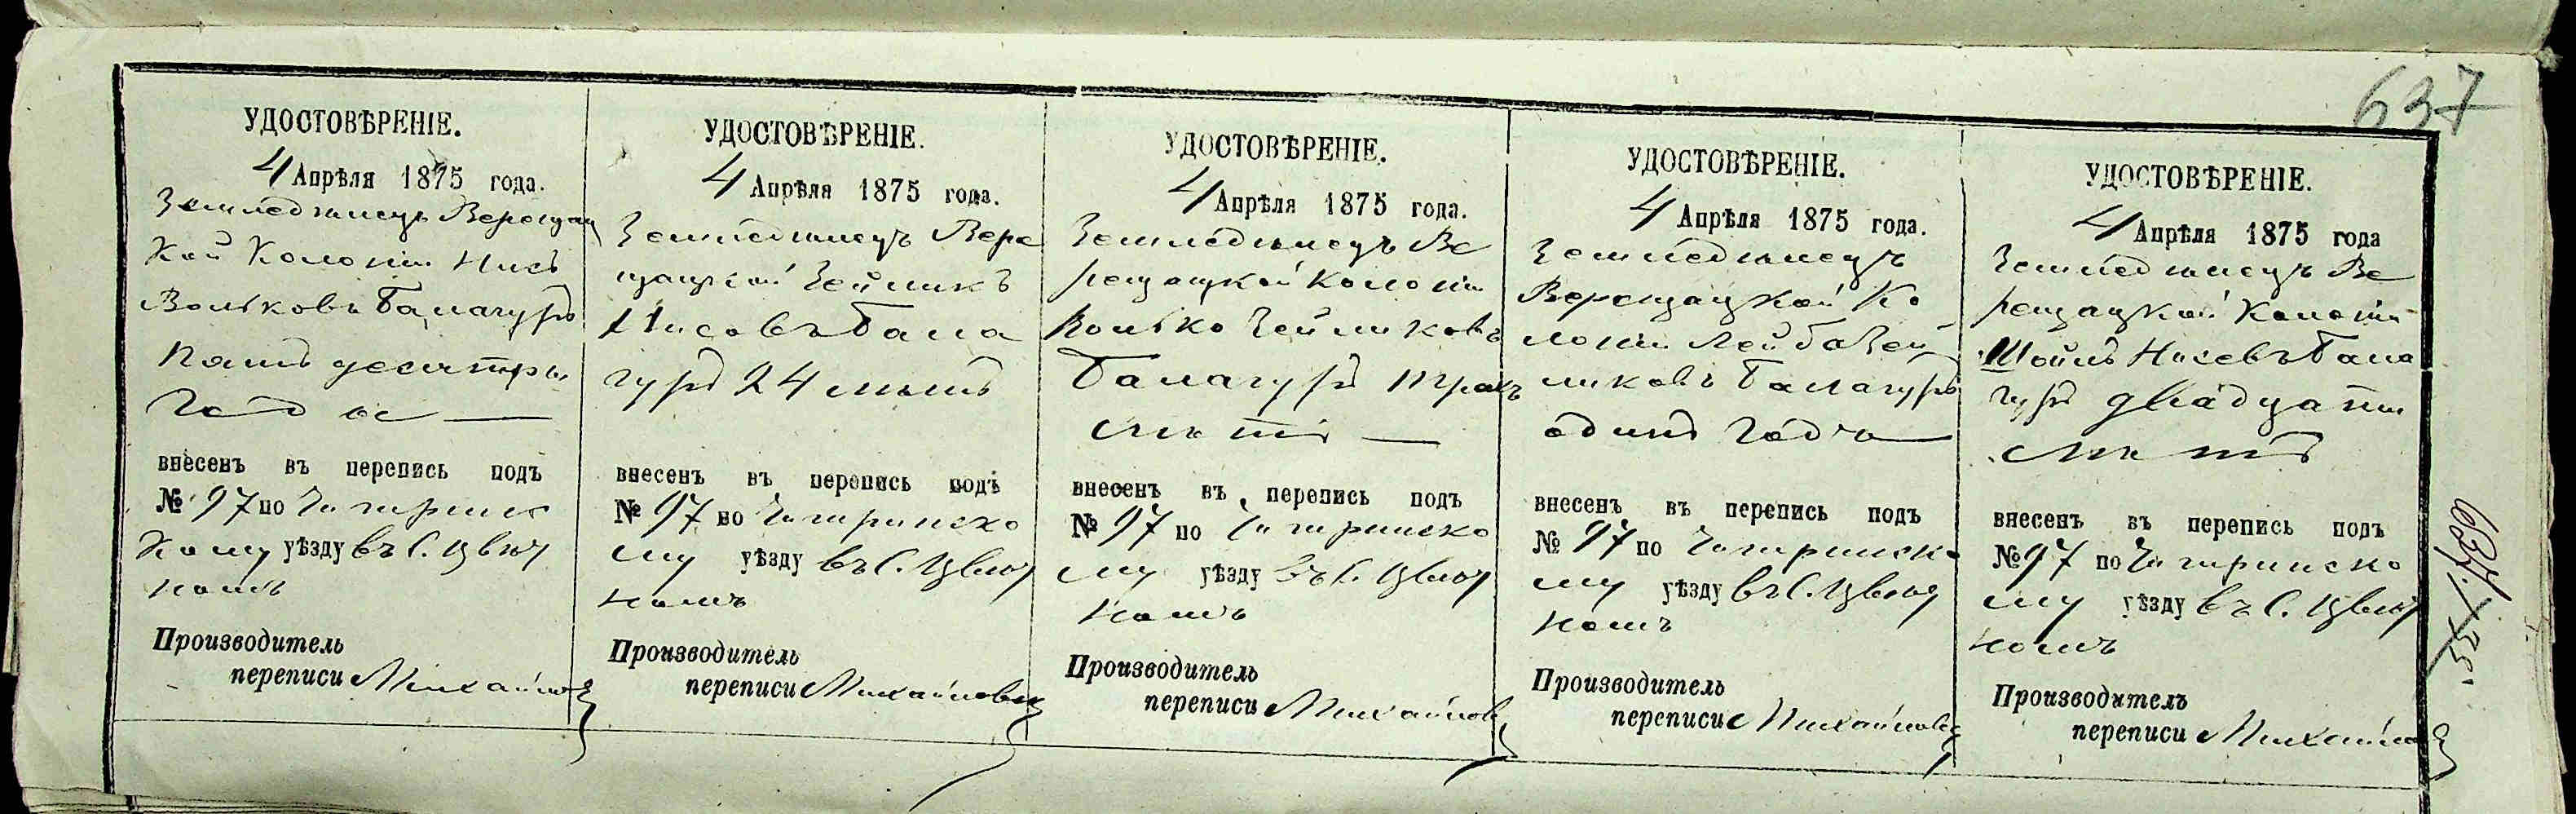 637
УДОСТОВѢРЕНІЕ.
4 Апрѣля 1875 года.
Земледѣлецъ Верещац
кой Колоніи Нисъ
Вольковъ Балагуръ
Пятьдесятъ три
Года —
внесенъ въ перепись подъ
№ 97 по Чигринс
кому уѣзду въ С. Цвѣт
номъ
Производитель
переписи Михайлов
УДОСТОВѢРЕНІЕ.
4 Апрѣля 1875 года.
Земледѣлецъ Вере
щацкой Хеймикъ
Нисовъ Бала
гуръ 24 лѣтъ
внесенъ въ перепись подъ
№ 97 по Чигринско
му уѣзду въ С. Цвѣт
номъ
Производитель
переписи Михайлов
УДОСТОВѢРЕНІЕ.
4 Апрѣля 1875 года.
Земледѣлецъ Ве
рещацкой Колоніи
Волько Хеймиковъ
Балагуръ трехъ
лѣтъ —
внесенъ въ перепись подъ
№ 97 по Чигринско
му уѣзду въ С. Цвѣт
номъ
Производитель
переписи Михайлов
УДОСТОВѢРЕНІЕ.
4 Апрѣля 1875 года.
Земледѣлецъ
Верещацкой Ко
лоніи Лейба Хей
миковъ Балагуръ
одинъ годъ —
внесенъ въ перепись подъ
№ 97 по Чигринско
му уѣзду въ С. Цвѣт
номъ
Производитель
переписи Михайлов
УДОСТОВѢРЕНІЕ.
4 Апрѣля 1875 года
Земледѣлецъ Ве
рещацкой Колоніи
Шоилъ Нисевъ Бала
гуръ двадцати
лѣтъ
внесенъ въ перепись подъ
№ 97 по Чигринско
му уѣзду въ С. Цвѣт
номъ
Производитель
переписи Михайлов